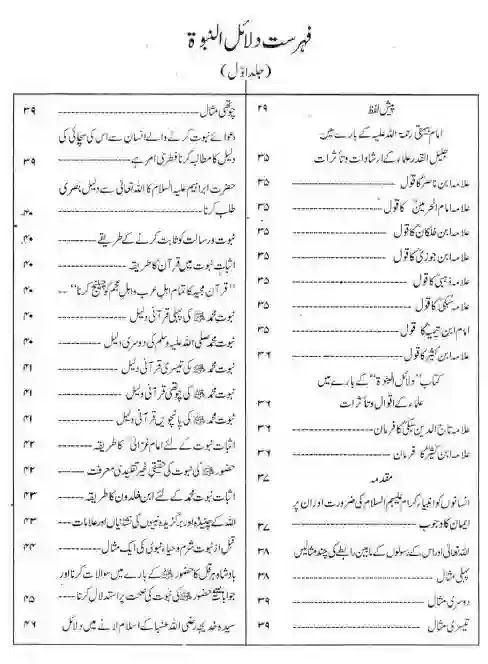 فہرست دلائل النبوۃ
(جلد اوّل)
پیش لفظ ۲۹
امام بیہقی رحمۃ اللہ علیہ کے بارے میں
جلیل القدر علماء کے ارشادات و تأثرات ۳۵
علامہ ابن ناصر کا قول ۳۵
علامہ امام الحرمین کا قول ۳۵
علامہ ابن خلکان کا قول ۳۵
علامہ ابن جوزی کا قول ۳۵
علامہ ذہبی کا قول ۳۵
علامہ سبکی کا قول ۳۵
امام ابن تیمیہ کا قول ۳۵
علامہ ابن کثیر کا قول ۳۶
کتاب "دلائل النبوۃ" کے بارے میں
علماء کے اقوال و تأثرات ۳۶
علامہ تاج الدین سبکی کا فرمان ۳۶
علامہ ابن کثیر کا فرمان ۳۶
مقدمہ ۳۷
انسانوں کو انبیاء کرام علیہم السلام کی ضرورت اور ان پر
ایمان کا وجوب ۳۷
اللہ تعالیٰ اور اس کے رسولوں کے مابین رابطے کی چند مثالیں ۳۸
پہلی مثال ۳۸
دوسری مثال ۳۹
تیسری مثال ۳۹
چوتھی مثال ۳۹
دعوائے نبوت کرنے والے انسان سے اس کی سچائی کی
دلیل کا مطالبہ کرنا فطری امر ہے ۳۹
حضرت ابراہیم علیہ السلام کا اللہ تعالیٰ سے دلیل بصری
طلب کرنا ۴۰
نبوت و رسالت کو ثابت کرنے کے طریقے ۴۰
اثبات نبوت میں قرآن کا طریقہ ۴۰
"قرآن مجید کا تمام اہل عرب و اہل عجم کو چیلنج کرنا" ۴۰
نبوت محمد ﷺ کی پہلی قرآنی دلیل ۴۰
نبوت محمد صلی اللہ علیہ وسلم کی دوسری دلیل ۴۰
نبوت محمد ﷺ کی تیسری قرآنی دلیل ۴۱
نبوت محمد ﷺ کی چوتھی قرآنی دلیل ۴۱
نبوت محمد ﷺ کی پانچویں قرآنی دلیل ۴۱
اثبات نبوت کے لئے امام غزالی کا طریقہ ۴۲
حضور ﷺ کی نبوت کی حقیقی غیر تقلیدی معرفت ۴۲
اثبات نبوت محمد کے لئے ابن خلدون کا طریقہ ۴۳
اللہ کے چنیدہ اور برگزیدہ نبیوں کی نشانیاں اور علامات ۴۳
قبل از نبوت شرم و حیاء نبوی کی ایک مثال ۴۴
بادشاہ ہرقل کا حضور ﷺ کے بارے میں سوالات کرنا اور
جوابا ﷺ حضور ﷺ کی نبوت کی صحت پر استدلال کرنا ۴۵
سیدہ خدیجہ رضی اللہ عنہا کے اسلام لانے میں دلائل ۴۶